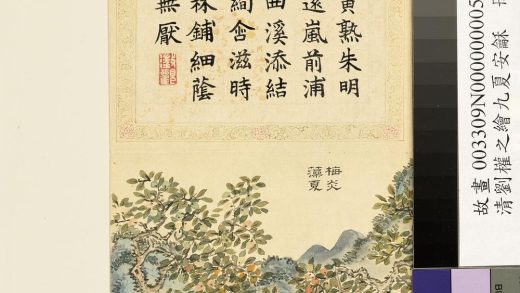 熟朱明
遠嵐前浦
曲溪添結
滋時
森鋪細蔭
無厭
梅炎
藻夏
故畫003309N000000005
清劉權之繪九夏安龢